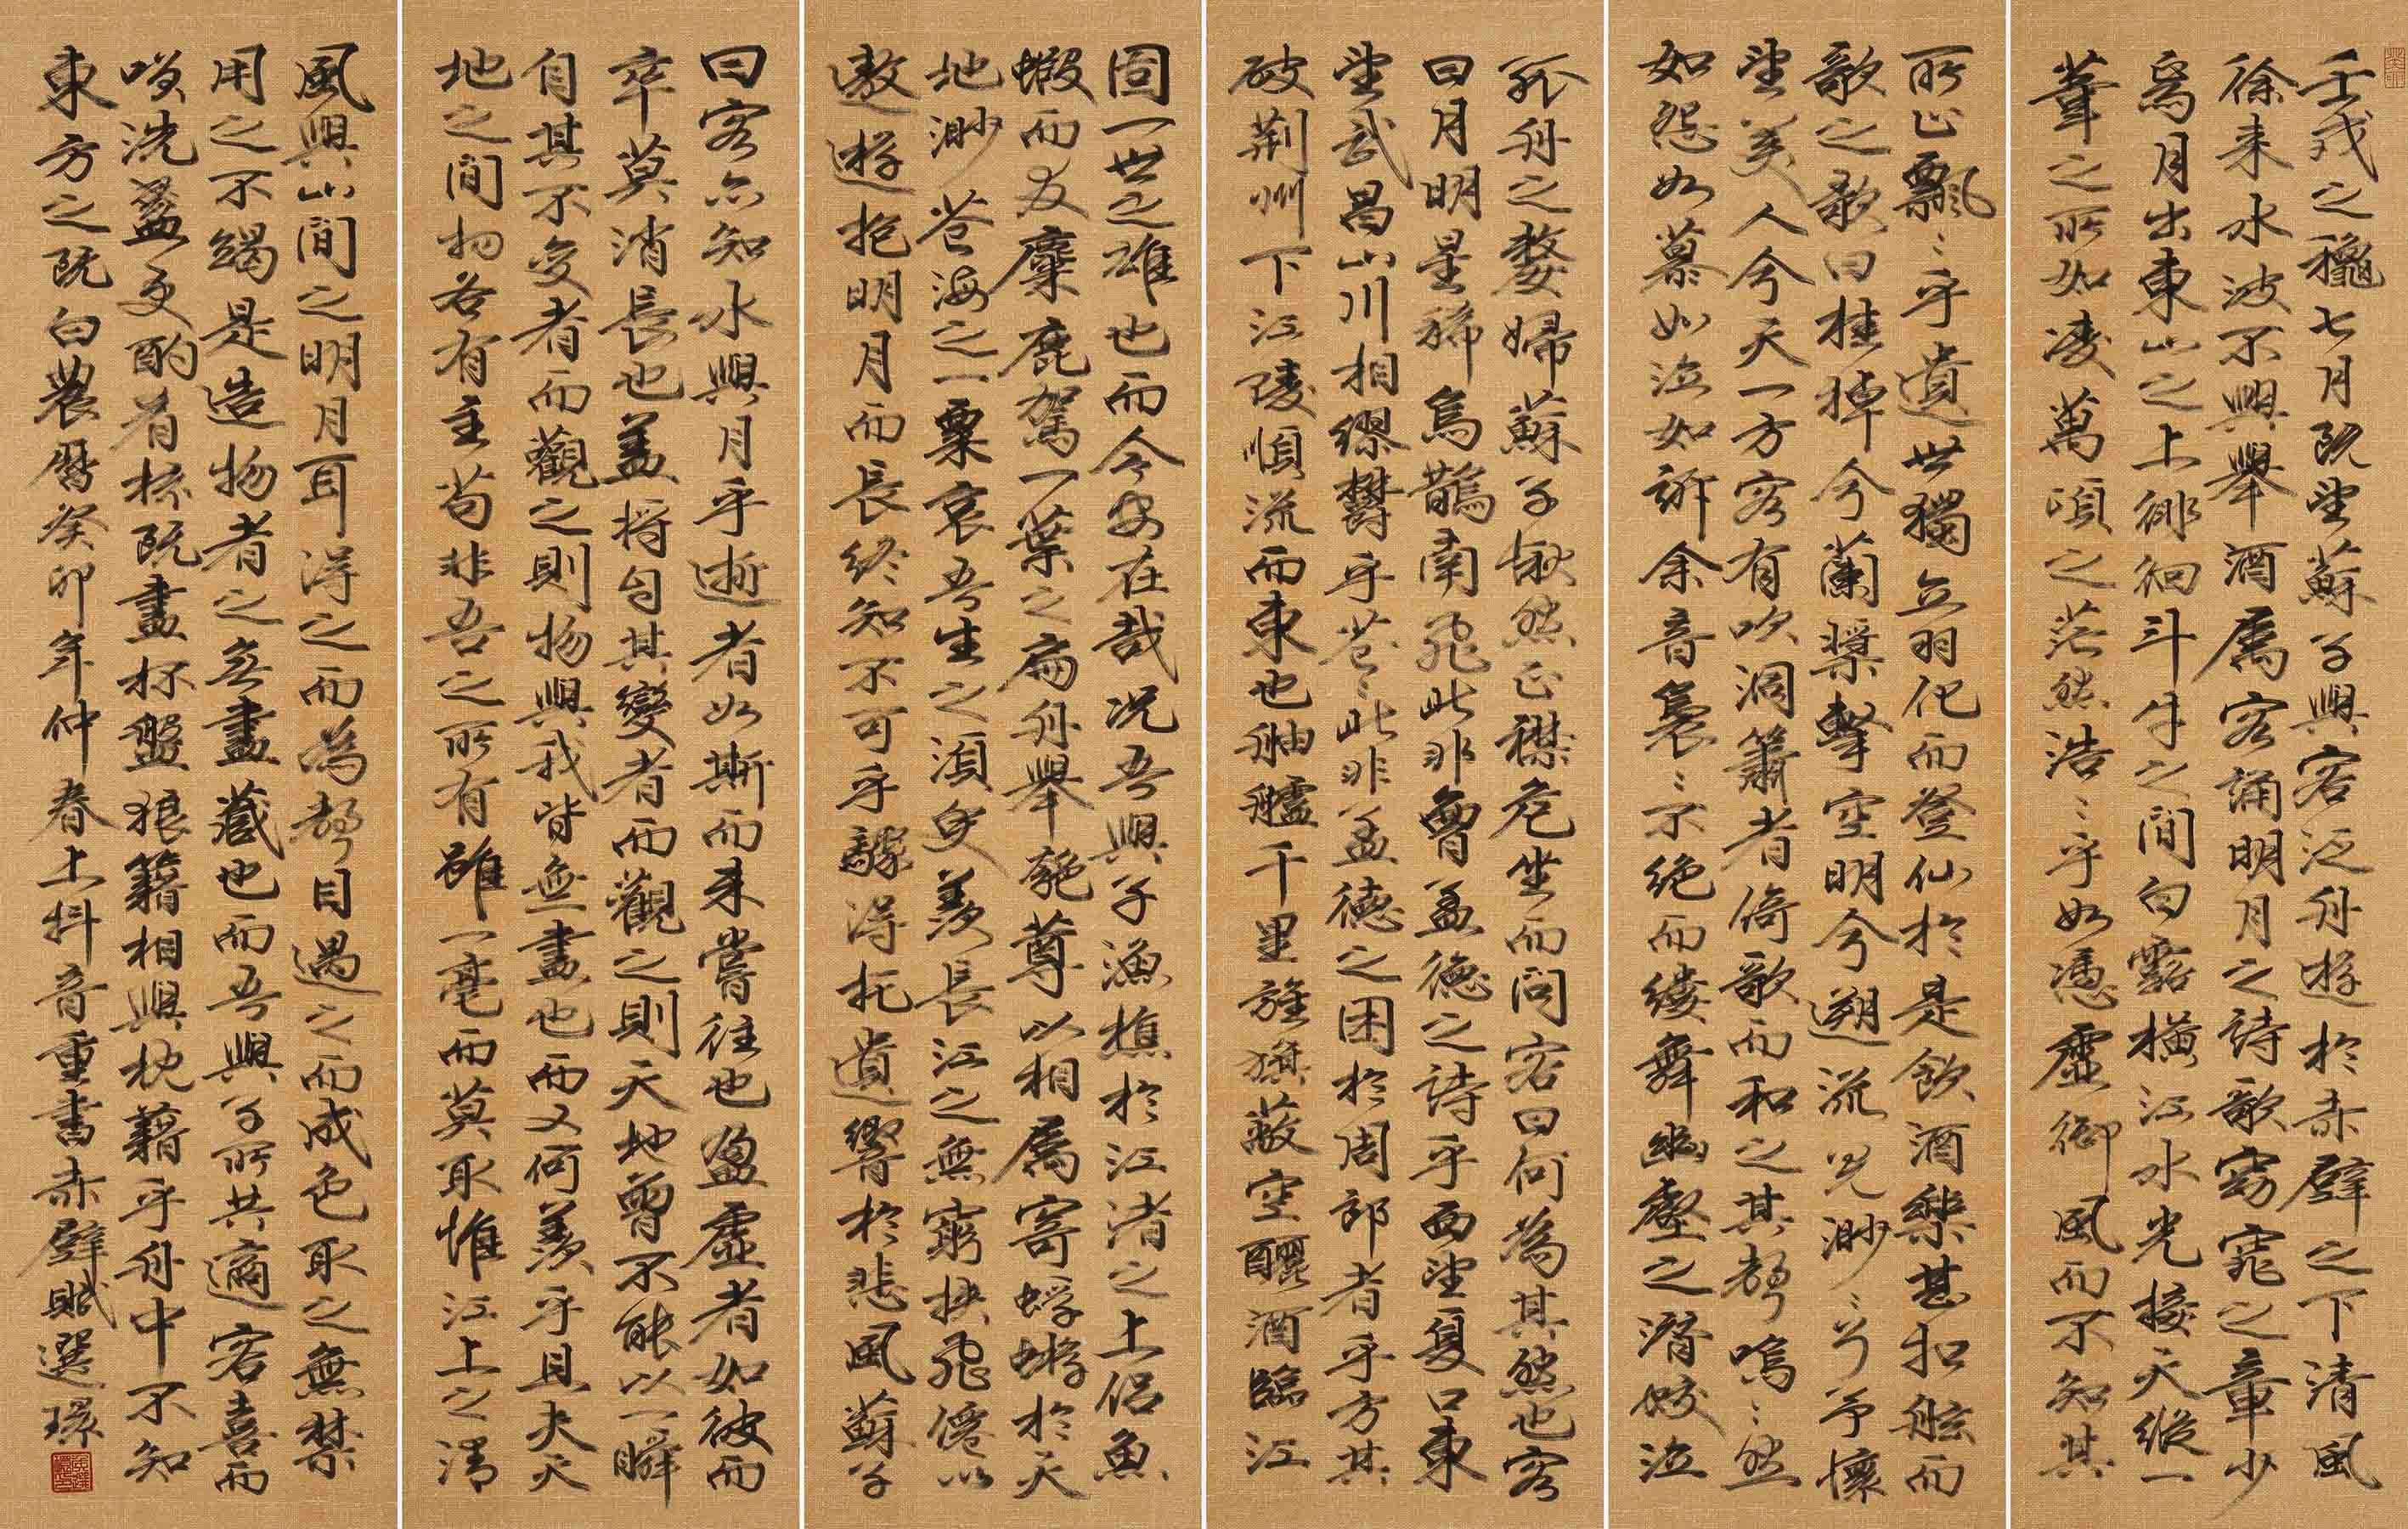 壬戌之龝七月既望蘇子與客泛舟遊於赤壁之下清風
徐來水波不興舉酒屬客誦明月之詩歌窈窕之章少
焉月出東山之上徘徊斗牛之間白露橫江水光接天縱一
葦之所如凌萬頃之茫然浩〻乎如憑虛御風而不知其
所止飄〻乎遺世獨立羽化而登仙於是飲酒樂甚扣舷而
歌之歌曰桂棹兮蘭槳擊空明兮遡流光渺〻兮予懷
望美人兮天一方客有吹洞簫者倚歌而和之其聲嗚〻然
如怨如慕如泣如訴余音裊〻不絕而縷舞幽壑之潛蛟泣
孤舟之嫠婦蘇子愀然正襟危坐而問客曰何為其然也客
曰月明星稀烏鵲南飛此非曹孟德之詩乎西望夏口東
望武昌山川相繆鬱乎蒼〻此非孟德之困於周郎者乎方其
破荊州下江陵順流而東也舳艫千里旌旗蔽空釃酒臨江
固一世之雄也而今安在哉況吾與子漁樵於江渚之上侶魚
蝦而友麋鹿駕一葉之扁舟舉匏尊以相屬寄蜉蝣於天
地渺蒼海之一粟哀吾生之須臾羨長江之無窮挾飛僊以
遨遊抱明月而長終知不可乎驟得托遺響於悲風蘇子
曰客亦知水與月乎逝者如斯而未嘗往也盈虛者如彼而
卒莫消長也蓋將自其變者而觀之則天地曾不能以一瞬
自其不變者而觀之則物與我皆無盡也而又何羨乎且夫天
地之間物各有主苟非吾之所有雖一毫而莫取惟江上之清
風與山間之明月耳得之而為聲目遇之而成色取之無禁
用之不竭是造物者之無盡藏也而吾與子所共適客喜而
笑洗盞更酌肴核既盡杯盤狼籍相與枕藉乎舟中不知
東方之既白農曆癸卯年仲春上抖音重書赤壁賦選環